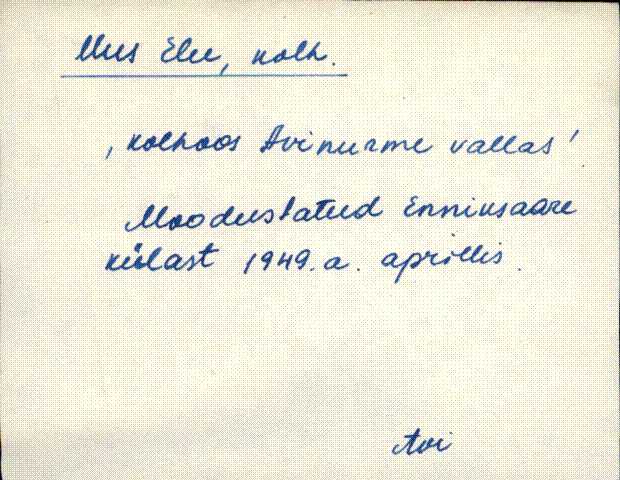 Uus Elu, kolh.
, kolhoos Avinurme vallas'
Moodustatud Enniksaare
külast 1949.a. aprillis.
Avi